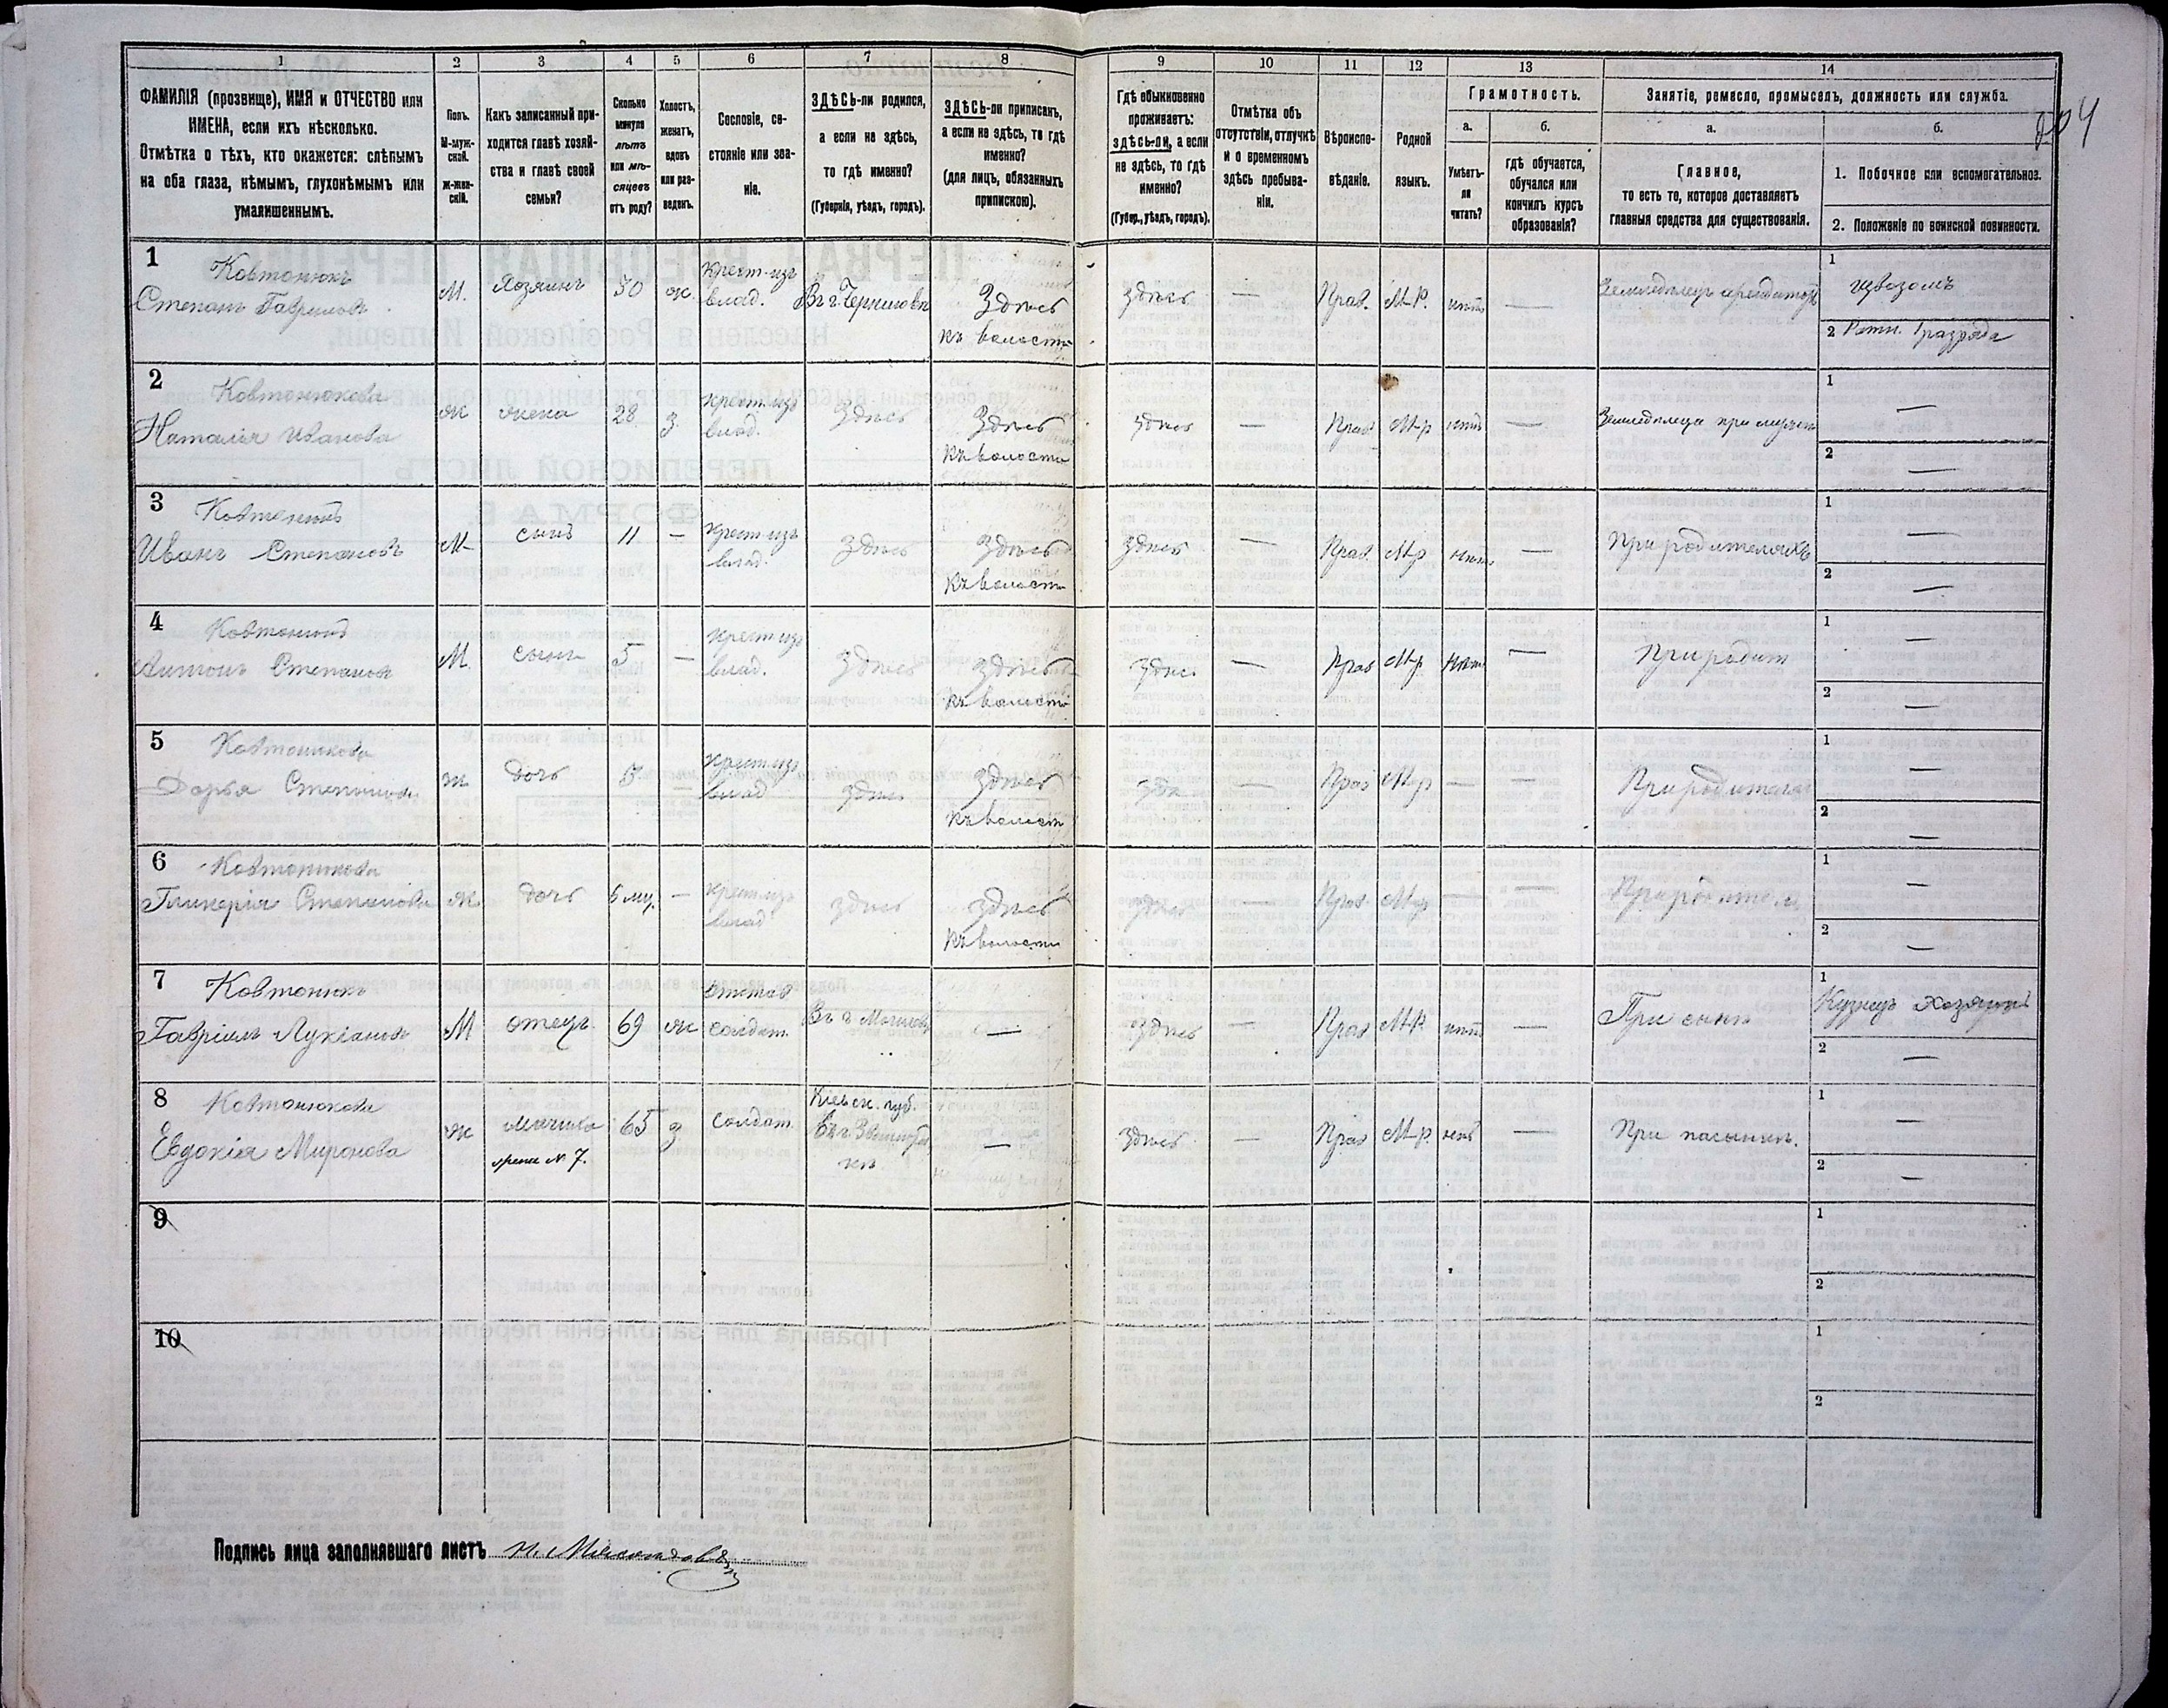 1 2 3 4 5 6 7 8 9 10 11 12 13 14
ФАМИЛІЯ (прозвище), ИМЯ и ОТЧЕСТВО или
ИМЕНА, если ихъ нѣсколько.
Отмѣтка о тѣхъ, кто окажется: слѣпымъ
на оба глаза, нѣмымъ, глухонѣмымъ или
умалишеннымъ.
Полъ.
М-муж-
ской.
Ж-жен-
скій.
Какъ записанный при-
ходится главѣ хозяй-
ства и главѣ своей
семьи?
Сколько
минуло
лѣтъ
или мѣ-
сяцевъ
отъ роду?
Холостъ,
женатъ,
вдовъ
или раз-
веденъ.
Сословіе, со-
стояніе или зва-
ніе.
ЗДѢСЬ-ли родился,
а если не здѣсь,
то гдѣ именно?
(Губернія, уѣздъ, городъ).
ЗДѢСЬ-ли приписанъ,
а если не здѣсь, то гдѣ
именно?
(для лицъ, обязанныхъ
припискою).
Гдѣ обыкновенно
проживаетъ:
здѣсь-ли, а если
не здѣсь, то гдѣ
именно?
(Губер., уѣздъ, городъ).
Отмѣтка объ
отсутствіи, отлучкѣ
и о временномъ
здѣсь пребыва-
ніи.
Вѣроиспо-
вѣданіе.
Родной
языкъ.
Грамотность.
а.
Умѣетъ-
ли
читать?
б.
гдѣ обучается,
обучался или
кончилъ курсъ
образованія?
Занятіе, ремесло, промыселъ, должность или служба.
а.
Главное,
то есть то, которое доставляетъ
главныя средства для существованія.
б.
1. Побочное или вспомогательное.
2. Положеніе по воинской повинности.
1 Ковтонюкъ
Степанъ Гавриловъ
М. Хозяинъ 30 ж. крест. изъ
влад.
Здѣсь
къ волости
здѣсь — Прав. М-Р. нѣтъ —
1 извозомъ
2 Ратн. 1 разряда
2 Ковтонюкова
Наталья Иванова
ж жена 28 з крест. изъ
влад.
здѣсь Здѣсь
къ волости
здѣсь — Прав М-р нѣтъ —
1 —
2 —
3 Ковтонюкъ
Иванъ Степановъ
М сынъ 11 — крест. изъ
влад.
здѣсь Здѣсь
къ волости
здѣсь — Прав М-р нѣтъ — При родителяхъ
1 —
2 —
4 Ковтонюкъ
Антонъ Степановъ
М. сынъ 5 — крест. изъ
влад.
здѣсь здѣсь
къ волости
здѣс — Прав М-р нѣт — При родит
1 —
2 —
5 Ковтонюкова
Дарья Степанова
ж дочь крест. изъ
влад
здѣс здѣсь
къ волост
— Прав М-р — — При родителя
1 —
2 —
6 Ковтонюкова
Гликерія Степанова
ж. дочь — крест. изъ
влад
здѣсь здѣсь
къ волости
здѣсь — Прав М-р — —
1 —
2 —
7 Ковтонюкъ
Гавріилъ Лукіановъ
М отецъ 69 ж отстав
солдат.
—
здѣсь — Прав М-Р. нѣтъ — При сынѣ
1 Кузнецъ хозяинъ
2 —
8 Ковтонюкова
Евдокія Миронова
ж мачиха
жена № 7.
65 з солдат.
Кіевск. губ.
—
здѣсь — Прав М-р. нѣтъ — При пасынкѣ.
1 —
2 —
9
1
2
10
1
2
Подпись лица заполнявшаго листъ